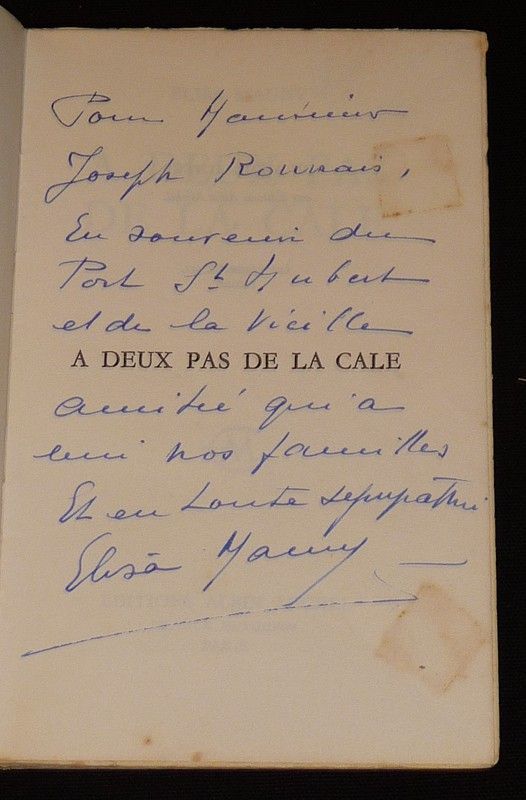 Pour Monsieur
Joseph Ronnais,
En souvenir du
Port St Hubert
et de la Vieille
A DEUX PAS DE LA CALE
amitié qui a
uni nos familles
Et en toute sympathie
Elisa